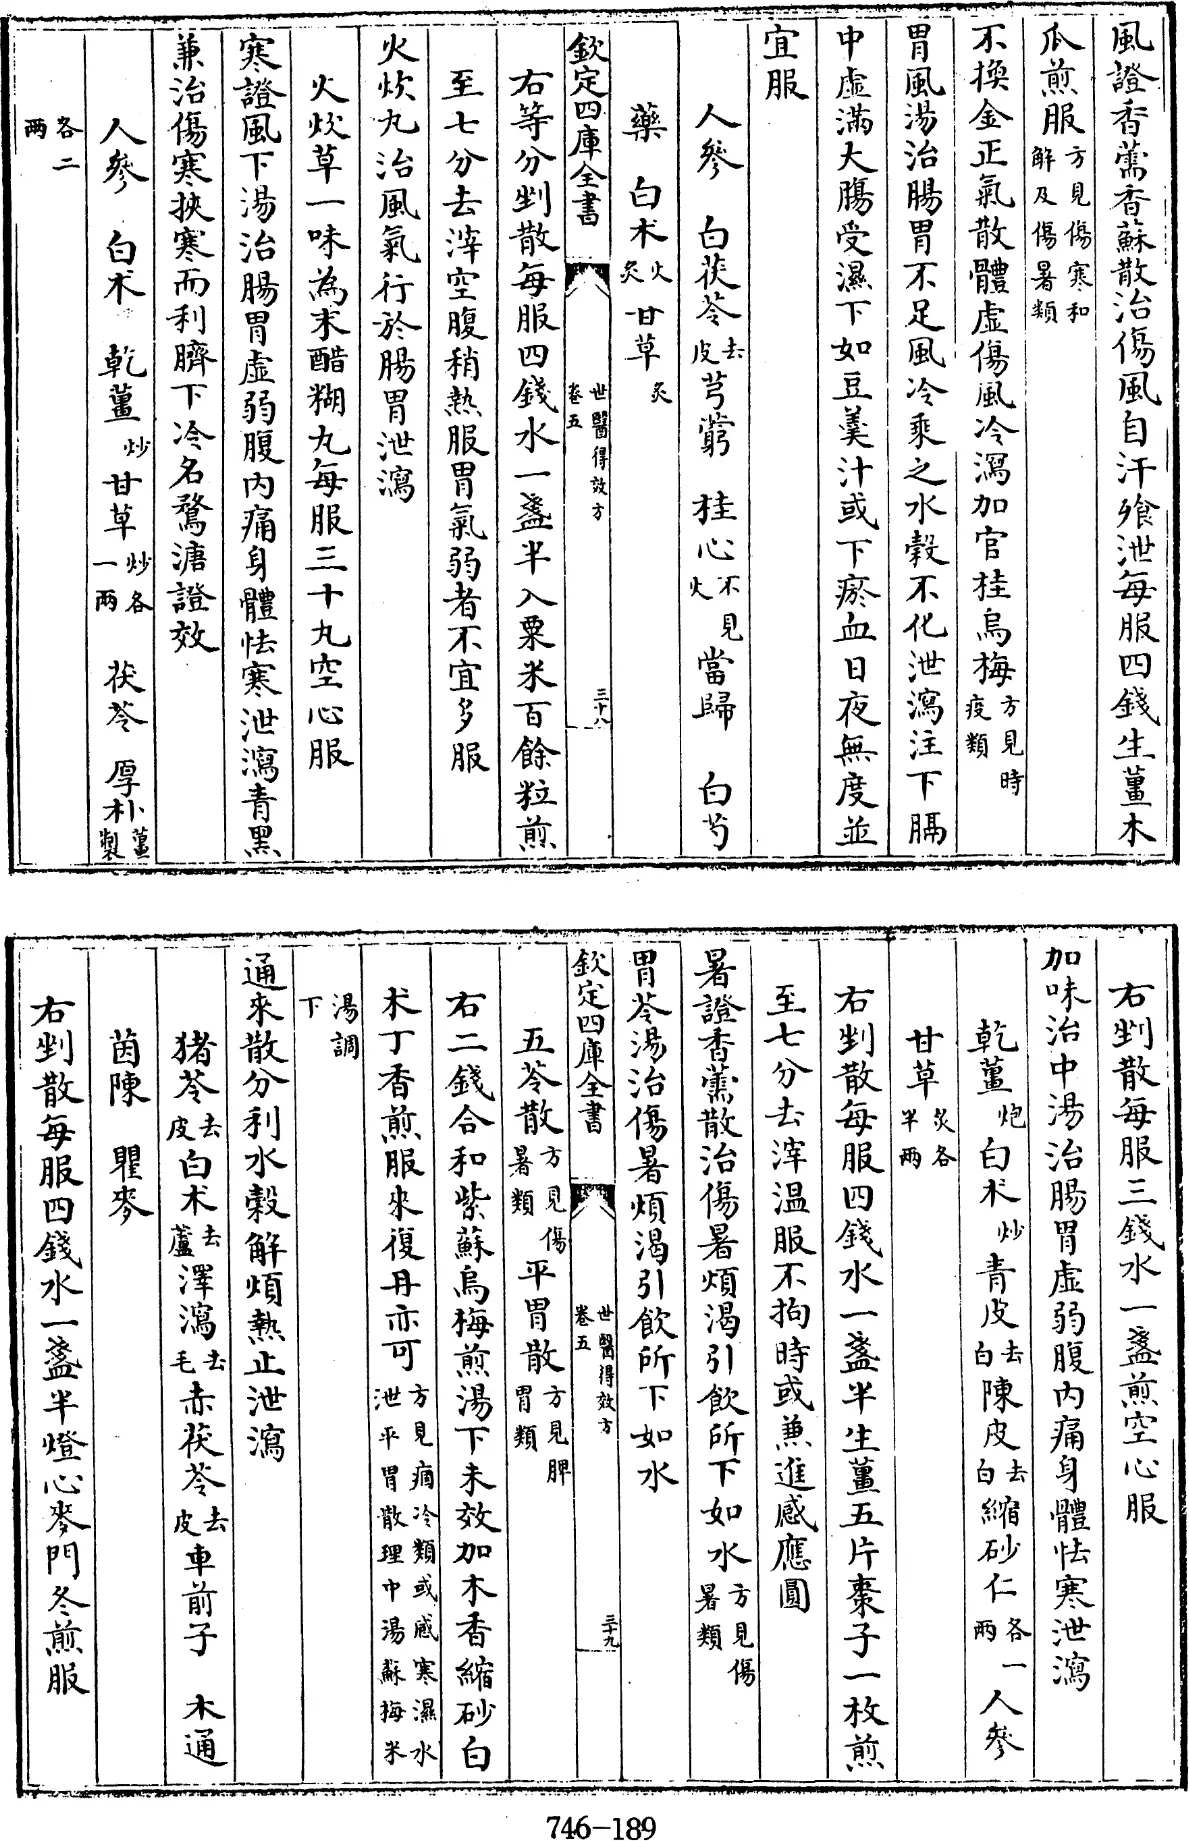 風證香薷香蘇散治傷風自汗飱泄每服四錢生薑木
瓜煎服方見傷寒和解及傷暑類
不換金正氣散體虛傷風冷瀉加官桂烏梅方見時疫類
胃風湯治腸胃不足風冷乘之水穀不化泄瀉注下膈
中虛滿大腸受濕下如豆羹汁或下瘀血日夜無度並
宜服
人參 白茯苓去皮芎藭 桂心不見火當歸 白芍
藥 白术火炙甘草炙
欽定四庫全書 世醫得效方 卷五 三十八
右等分剉散每服四錢水一盞半入粟米百餘粒煎
至七分去滓空腹稍熱服胃氣弱者不宜多服
火炊丸治風氣行於腸胃泄瀉
火炊草一味為末醋糊丸每服三十丸空心服
寒證風下湯治腸胃虛弱腹内痛身體怯寒泄瀉青黑
兼治傷寒挾寒而利臍下冷名鶩溏證效
人參 白术 乾薑炒甘草炒各一兩 茯苓 厚朴薑製
各二兩
右剉散每服三錢水一盞煎空心服
加味治中湯治腸胃虛弱腹内痛身體怯寒泄瀉
乾薑炮白术炒青皮去白陳皮去白縮砂仁各一兩人參
甘草炙各半兩
右剉散每服四錢水一盞半生薑五片棗子一枚煎
至七分去滓温服不拘時或兼進感應圓
暑證香薷散治傷暑煩渴引飲所下如水方見傷暑類
胃苓湯治傷暑煩渴引飲所下如水
欽定四庫全書 世醫得效方 卷五 三十九
五苓散方見傷暑類 平胃散方見脾胃類
右二錢合和紫蘇烏梅煎湯下未效加木香縮砂白
术丁香煎服來復丹亦可方見痼冷類或感寒濕水泄平胃散理中湯蘇梅米
湯調下
通來散分利水穀解煩熱止泄瀉
猪苓去皮白术去蘆澤瀉去毛赤茯苓去皮車前子 木通
茵陳 瞿麥
右剉散每服四錢水一盞半燈心麥門冬煎服
746-189